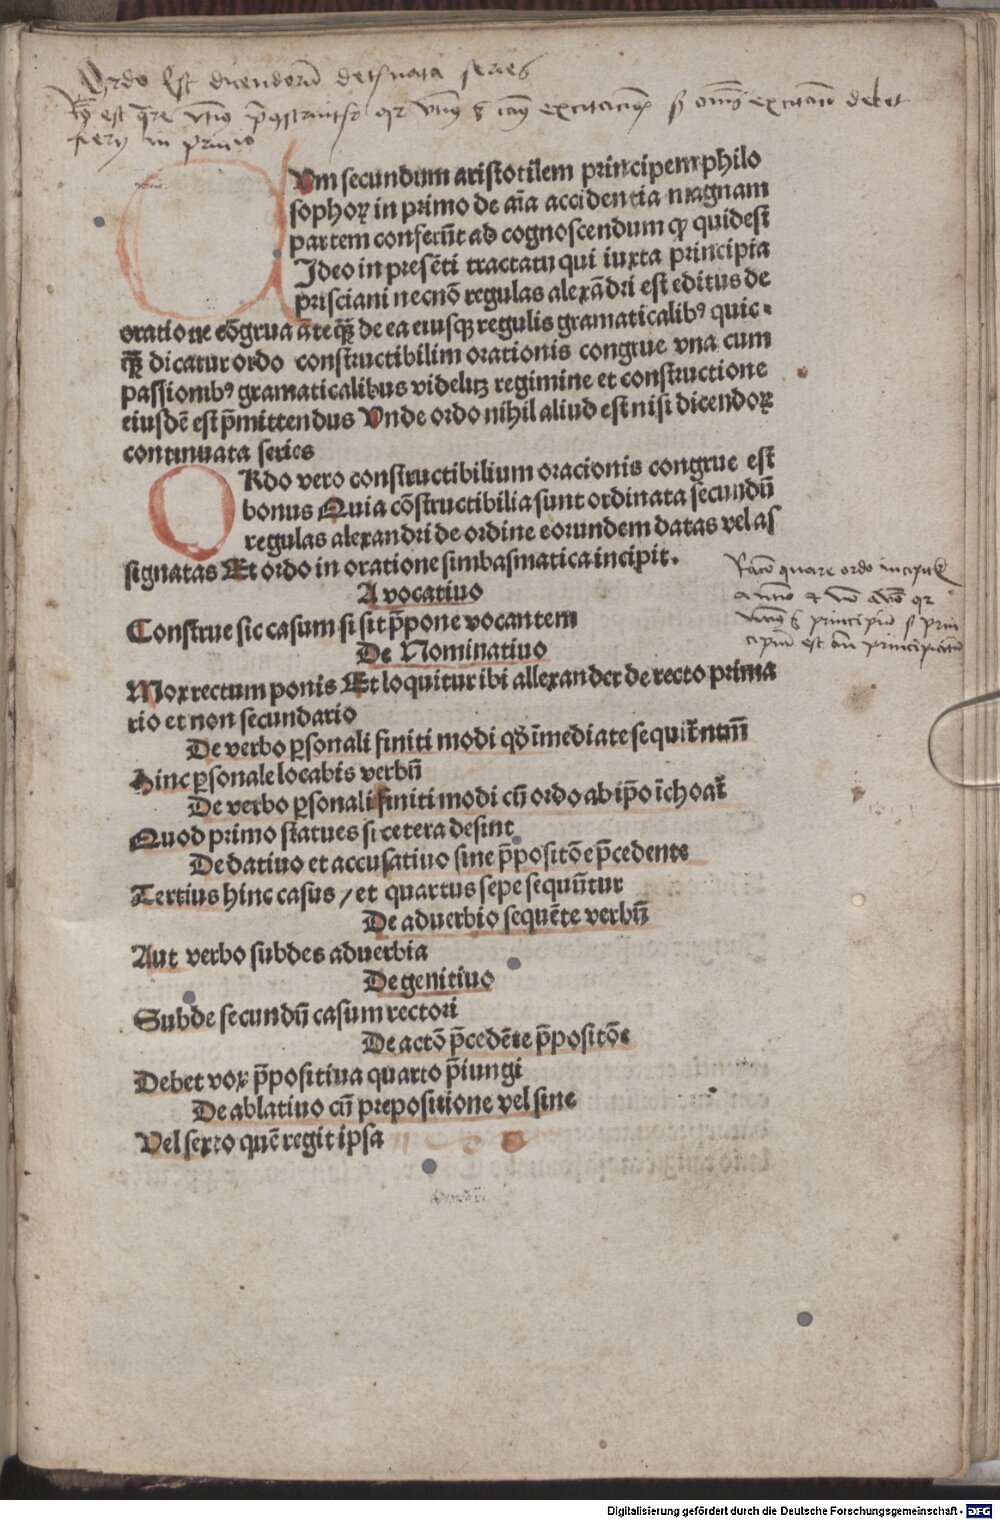 Ordo Est dicendorū determinata series
est excitare debet
fiery in primo
CUm secundum aristotilem principem philo
sophoꝝ in primo de aīa accidentia magnam
partem conferūt ad cognoscendum ꝙ quidest
Ideo in presēti tractatu qui iuxta principia
prisciani necnō regulas alexādri est editus de
oratione cōgrua āteq̄ꝫ de ea eiusqꝫ regulis gramaticalibꝰ quic-
q̄ꝫ dicatur ordo constructibilim orationis congrue vna cum
passiombꝰ gramaticalibus videlitꝫ regimine et constructione
eiusdē est p̄mittendus Vnde ordo nihil aliud est nisi dicendoꝝ
continuata series
ORdo vero constructibilium oracionis congrue est
bonus Quia cōstructibilia sunt ordinata secundū
regulas alexandri de ordine eorundem datas vel as
signatas Et ordo in oratione simbasmatica incipit.
A vocatiuo
Construe sic casum si sit p̄pone vocantem
De Nominatiuo
Mox rectum ponis Et loquitur ibi allexander de recto prima
rio et non secundario
De verbo ꝑsonali finiti modi qď īmediate sequit̄ ntm̄
Hinc ꝑsonale locabis verbū
De verbo ꝑsonali finiti modi cū ordo ab ip̄o īchoat̄
Quod primo statues si cetera desint
De datiuo et accusatiuo sine p̄positōe p̄cedente
Tertius hinc casus / et quartus sepe sequūtur
De aduerbio sequēte verbū
Aut verbo subdes aduerbia
De genitiuo
Subde secundū casum rectori
De actō p̄cedēte p̄positōe
Debet vox p̄positiua quarto p̄iungi
De ablatiuo cū prepositione vel sine
Vel sexto quē regit ipsa
Racō quare ordo incipit
principiū
est principiatū
Digitalisierung gefördert durch die Deutsche Forschungsgemeinschaft - DFG